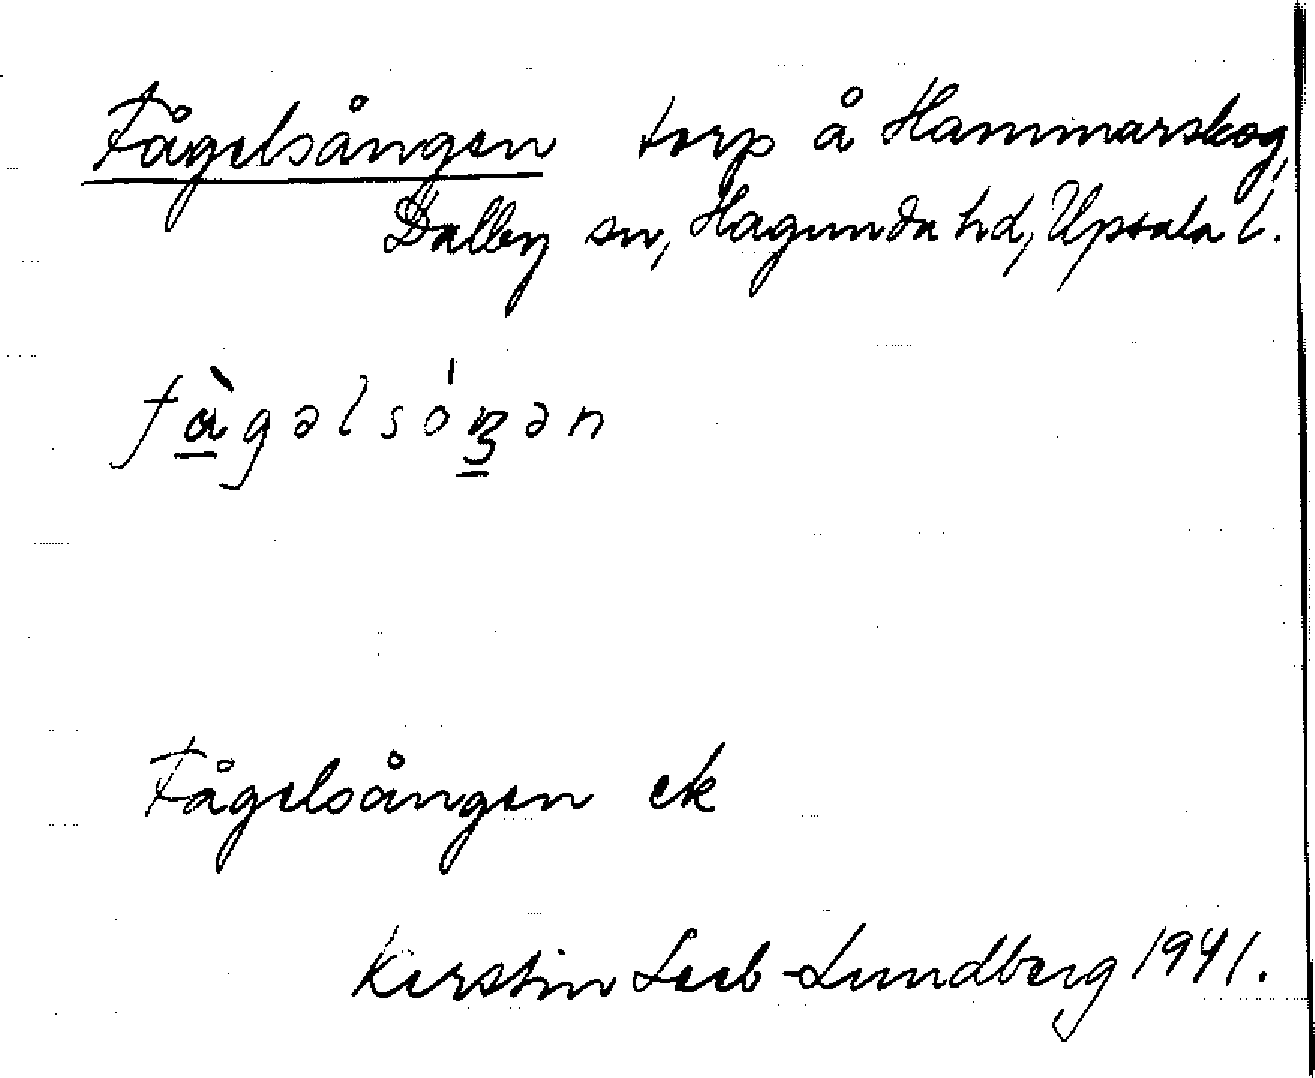 Fågelsången torp å Hammarskog,
Dalby sn, Hagunda hd, Upsala l.
fàgəlsóŋən
Fågelsången ek
Kerstin Leeb-Lundberg 1941.